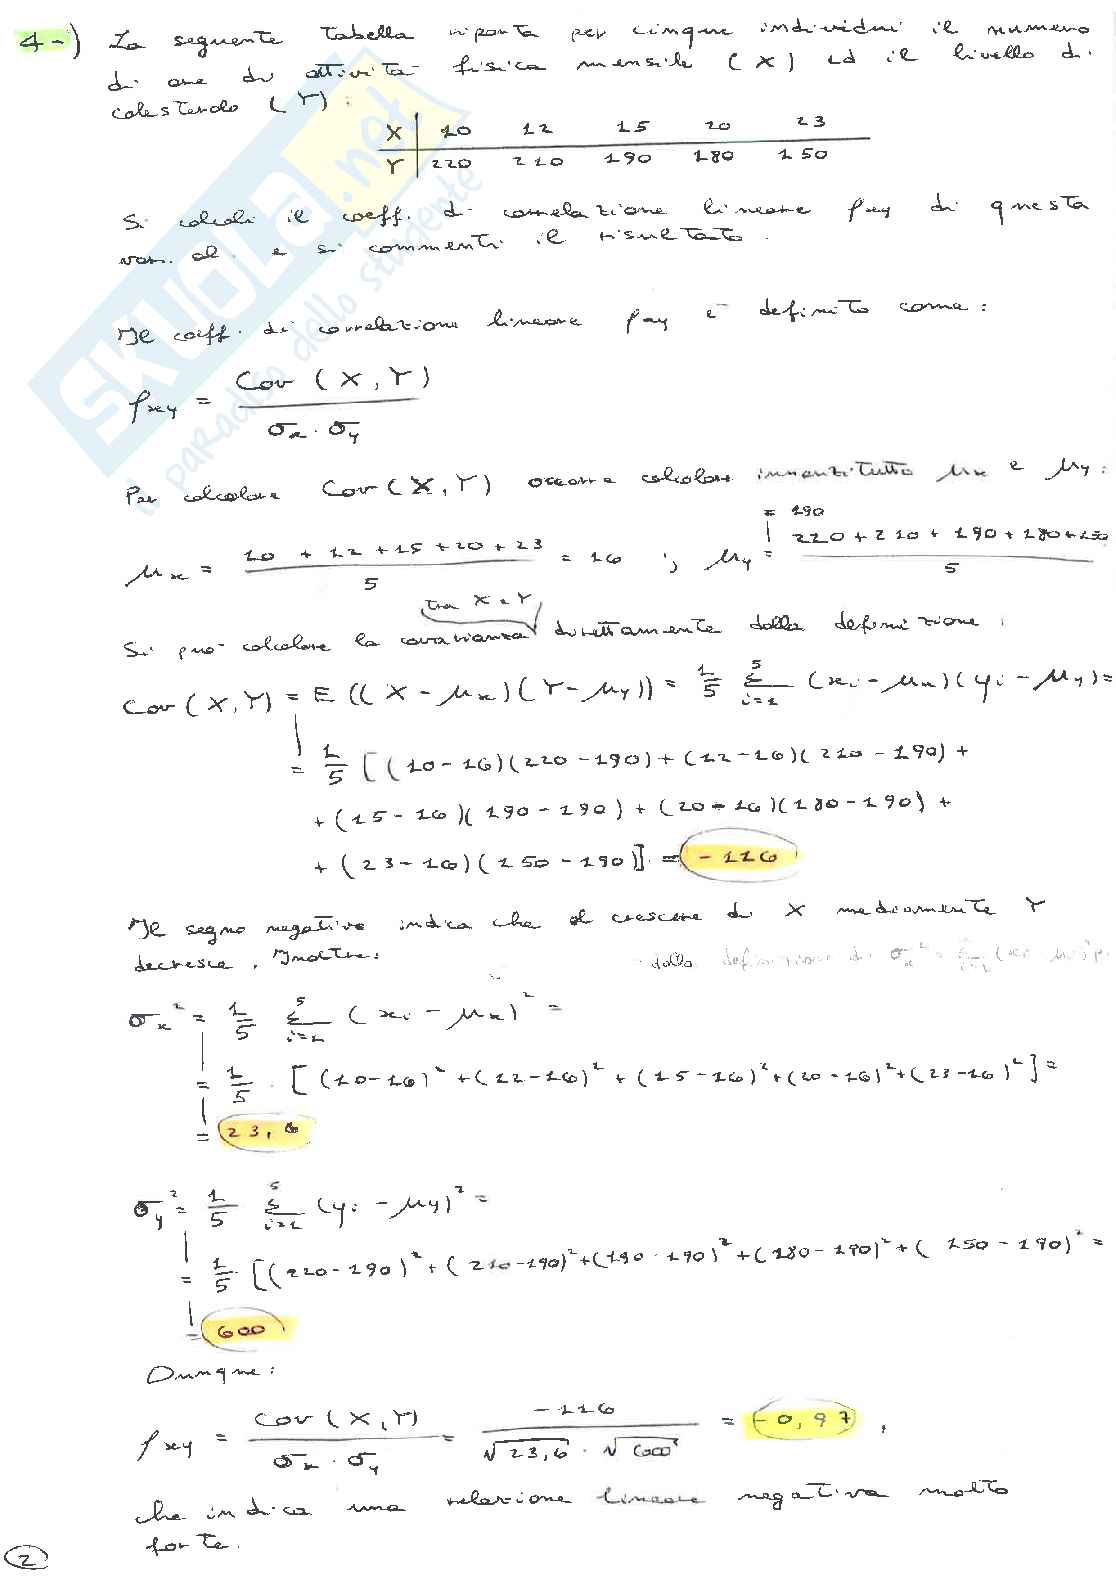 4-) La seguente tabella riporta per cinque individui il numero
di ore di attività fisica mensile (X) ed il livello di
colesterolo (Y):
X | 10 12 15 20 23
Y | 220 210 190 180 150
Si calcoli il coeff. di correlazione lineare ρxy di questa
var. al. e si commenti il risultato.
Il coeff. di correlazione lineare ρxy è definito come:
ρxy = Cov (X,Y) / σx · σy
Per calcolare Cov(X,Y) occorre calcolare innanzitutto μx e μy:
μx = (10 + 12 + 15 + 20 + 23) / 5 = 16 ; μy = (220 + 210 + 190 + 180 + 150) / 5 = 190
Si può calcolare la covarianza tra X e Y direttamente dalla definizione:
Cov(X,Y) = E((X-μx)(Y-μy)) = 1/5 Σ i=1 5 (xi-μx)(yi-μy) =
= 1/5 [(10-16)(220-190)+(12-16)(210-190)+
+(15-16)(190-190)+(20-16)(180-190)+
+(23-16)(150-190)] = -116
Il segno negativo indica che al crescere di X mediamente Y
decresce. Inoltre:
dalla definizione di σx² = Σ i=1
σx² = 1/5 Σ i=1 5 (xi-μx)² =
= 1/5 · [(10-16)²+(12-16)²+(15-16)²+(20-16)²+(23-16)²] =
= 23,6
σy² = 1/5 Σ i=1 5 (yi-μy)² =
= 1/5 · [(220-190)²+(210-190)²+(190-190)²+(180-190)²+(150-190)² =
= 600
Dunque:
ρxy = Cov(X,Y) / σx · σy = -116 / √23,6 · √600 = -0,97,
che indica una relazione lineare negativa molto
forte.
2
SKUOLA.net
il paradiso dello studente